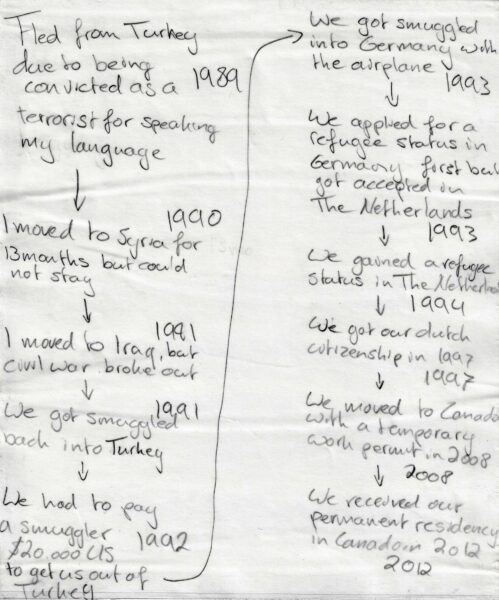 Fled from Turkey
due to being 1989
convicted as a
terrorist for speaking
my language
1990
I moved to Syria for
13 months but could
not stay
1991
I moved to Iraq, but
civil war broke out
1991
We got smuggled
back into Turkey
We had to pay
a smuggler 1992
$20.000 US
to get us out of
Turkey
We got smuggled
into Germany with
the airplane
1993
We applied for a
refugee status in
Germany first but
got accepted in
The Netherlands
1993
We gained a refugee
status in The Netherla
1994
We got our dutch
citizenship in 1997
1997
We moved to Canada
with a temporary
work permit in 2008
2008
We received our
permanent residency
in Canada in 2012
2012